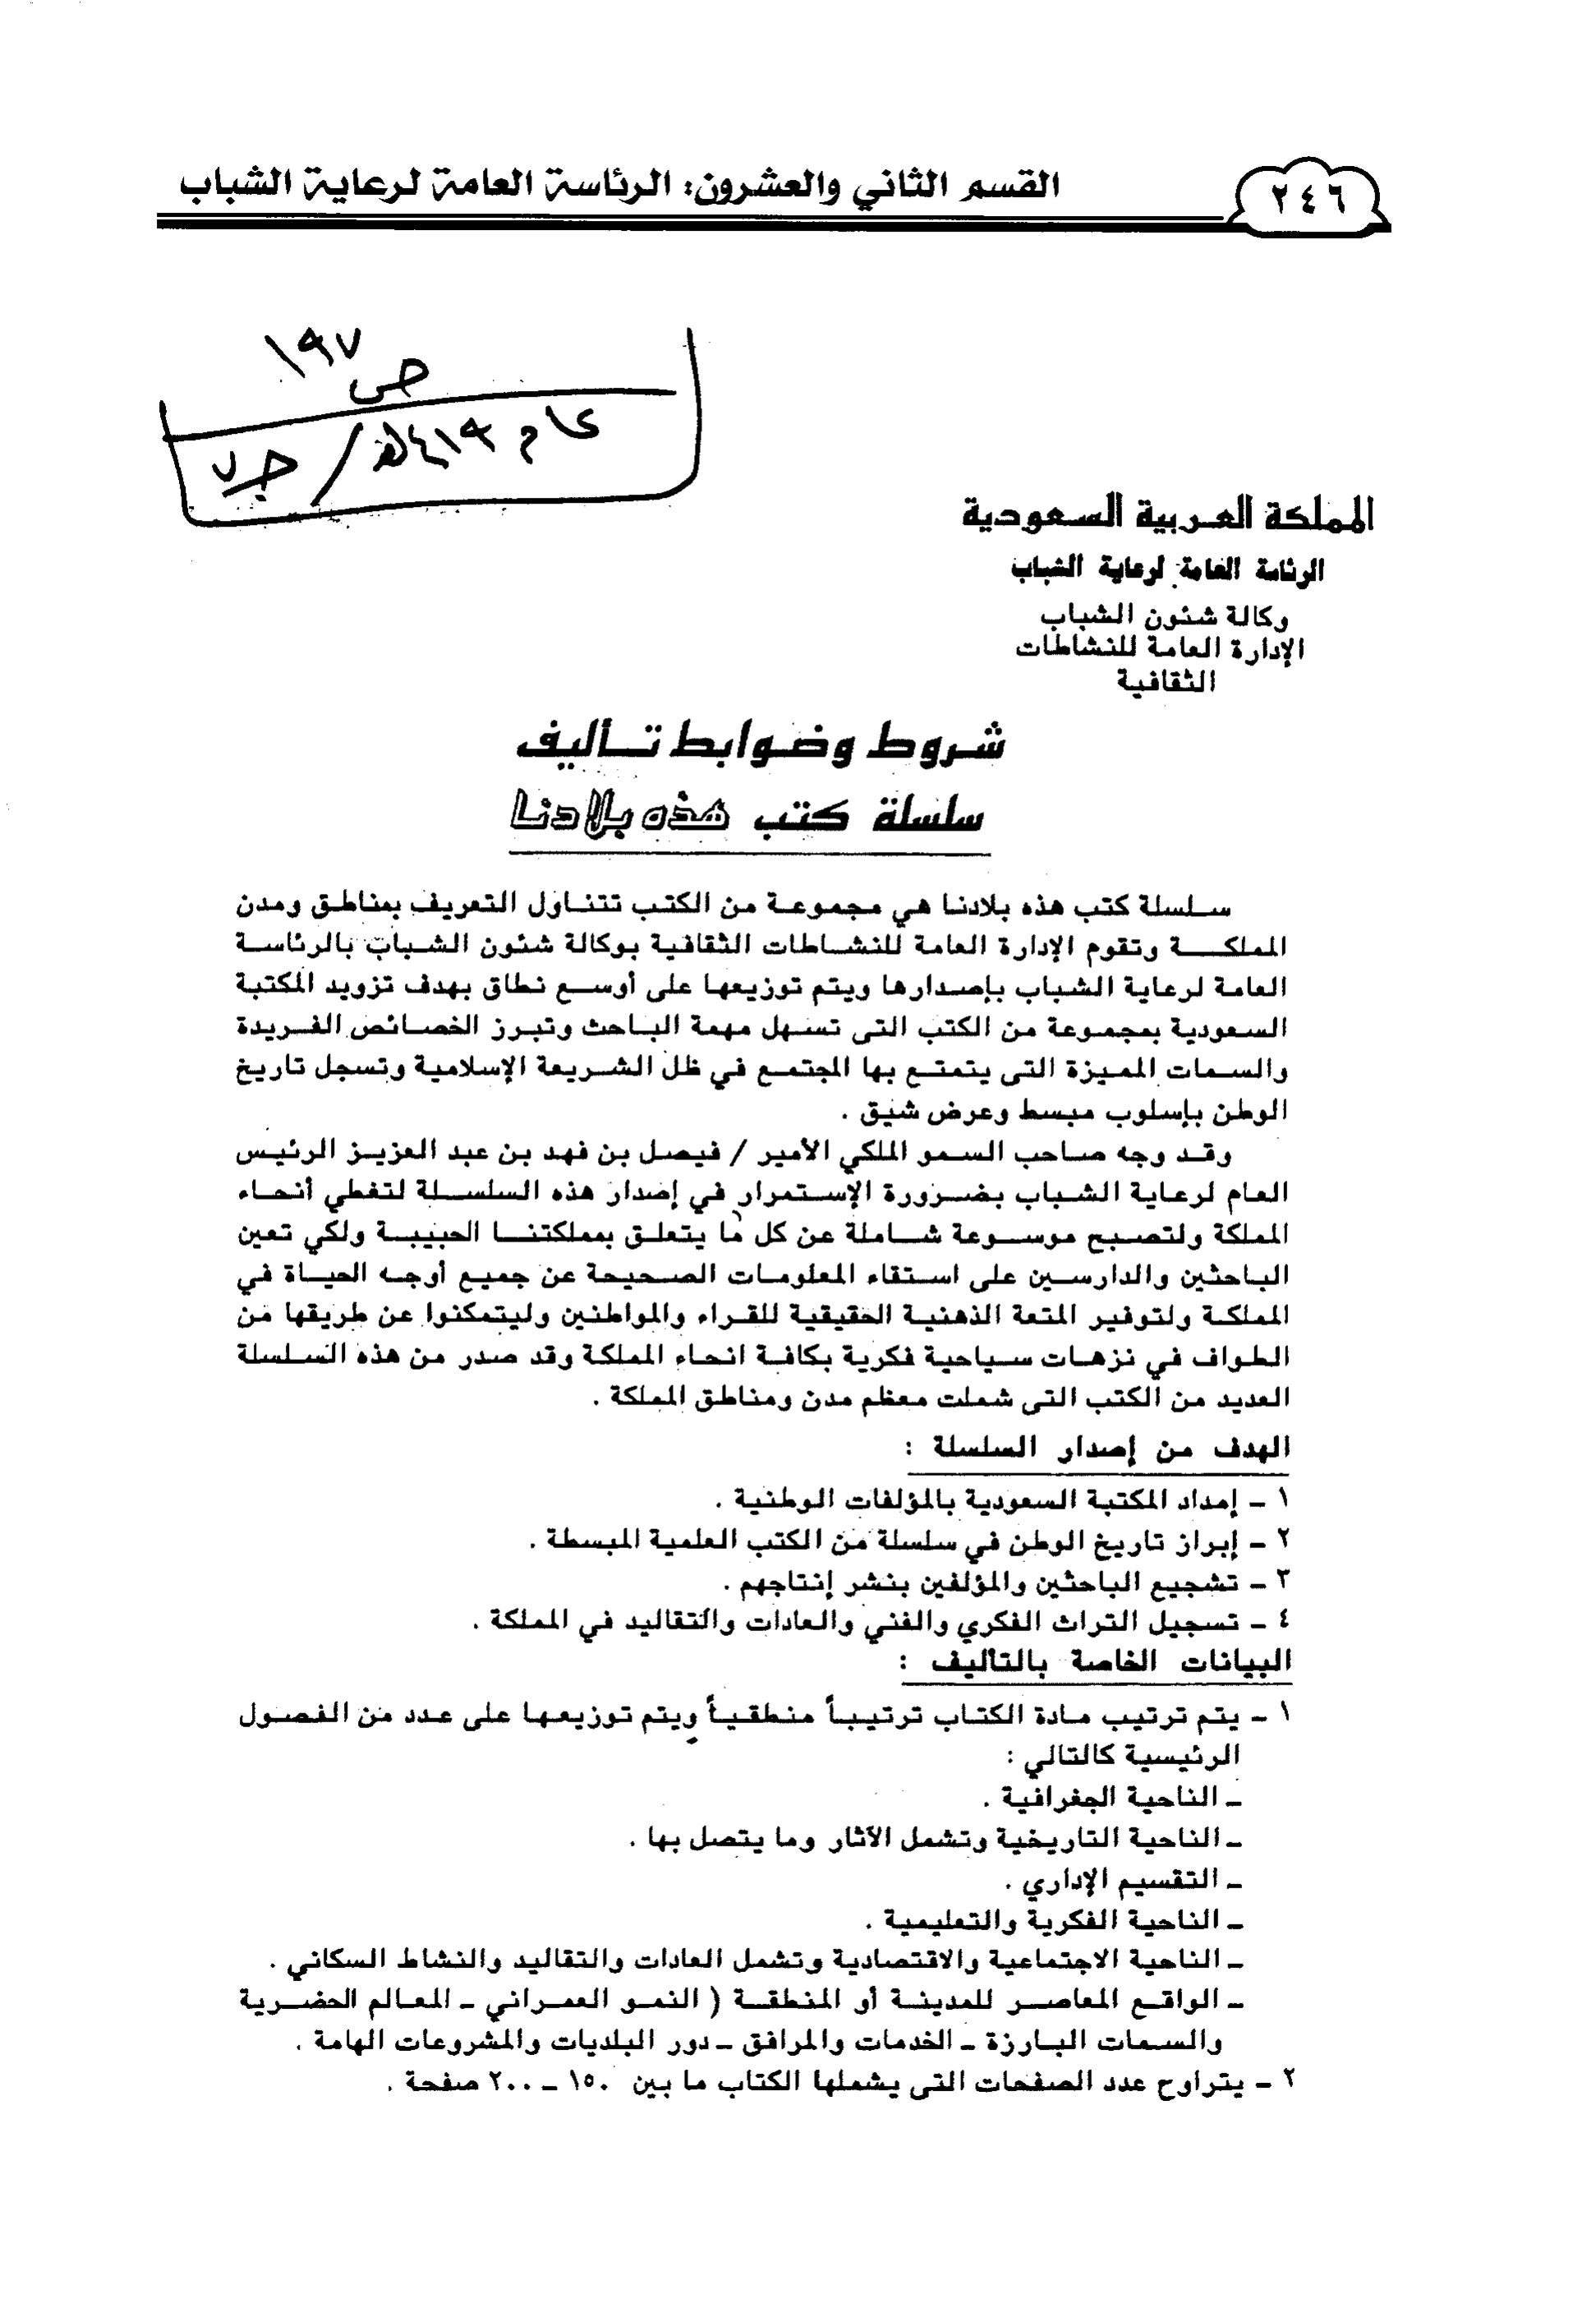 ٢٤٦
القسم الثاني والعشرون: الرئاسة العامة لرعاية الشباب
ص ١٩٧
عام ١٤١٩هـ / جـ٧
المملكة العربية السعودية
الرئاسة العامة لرعاية الشباب
وكالة شئون الشباب
الإدارة العامة للنشاطات
الثقافية
شروط وضوابط تأليف
سلسلة كتب هذه بلادنا
سلسلة كتب هذه بلادنا هي مجموعة من الكتب تتناول التعريف بمناطق ومدن
المملكة وتقوم الإدارة العامة للنشاطات الثقافية بوكالة شئون الشباب بالرئاسة
العامة لرعاية الشباب بإصدارها ويتم توزيعها على أوسع نطاق بهدف تزويد المكتبة
السعودية بمجموعة من الكتب التى تسهل مهمة الباحث وتبرز الخصائص الفريدة
والسمات المميزة التى يتمتع بها المجتمع في ظل الشريعة الإسلامية وتسجل تاريخ
الوطن بإسلوب مبسط وعرض شيق .
وقد وجه صاحب السمو الملكي الأمير / فيصل بن فهد بن عبد العزيز الرئيس
العام لرعاية الشباب بضرورة الإستمرار في إصدار هذه السلسلة لتغطي أنحاء
المملكة ولتصبح موسوعة شاملة عن كل ما يتعلق بمملكتنا الحبيبة ولكي تعين
الباحثين والدارسين على استقاء المعلومات الصحيحة عن جميع أوجه الحياة في
المملكة ولتوفير المتعة الذهنية الحقيقية للقراء والمواطنين وليتمكنوا عن طريقها من
الطواف في نزهات سياحية فكرية بكافة انحاء المملكة وقد صدر من هذه السلسلة
العديد من الكتب التى شملت معظم مدن ومناطق المملكة .
الهدف من إصدار السلسلة :
١ - إمداد المكتبة السعودية بالمؤلفات الوطنية .
٢ - إبراز تاريخ الوطن في سلسلة من الكتب العلمية المبسطة .
٣ - تشجيع الباحثين والمؤلفين بنشر إنتاجهم .
٤ - تسجيل التراث الفكري والفني والعادات والتقاليد في المملكة .
البيانات الخاصة بالتأليف :
١ - يتم ترتيب مادة الكتاب ترتيباً منطقياً ويتم توزيعها على عدد من الفصول
الرئيسية كالتالي :
- الناحية الجغرافية .
- الناحية التاريخية وتشمل الآثار وما يتصل بها .
- التقسيم الإداري .
- الناحية الفكرية والتعليمية .
- الناحية الاجتماعية والاقتصادية وتشمل العادات والتقاليد والنشاط السكاني .
- الواقع المعاصر للمدينة أو المنطقة ( النمو العمراني - المعالم الحضرية
والسمات البارزة - الخدمات والمرافق - دور البلديات والمشروعات الهامة .
٢ - يتراوح عدد الصفحات التى يشملها الكتاب ما بين ١٥٠ - ٢٠٠ صفحة .